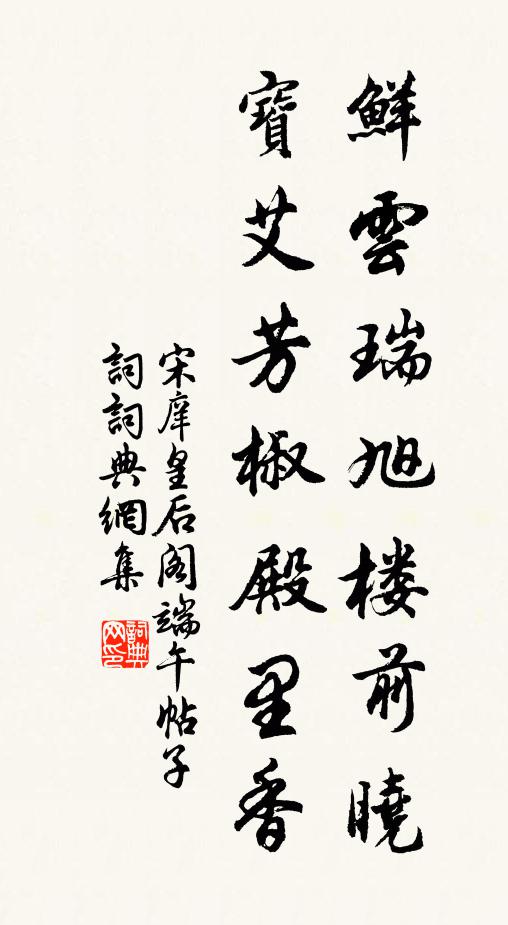 鮮雲瑞旭楼前曉
寶艾芳椒殿里香
宋庠皇后阁端午帖子
詞詞典網集
詞典网印